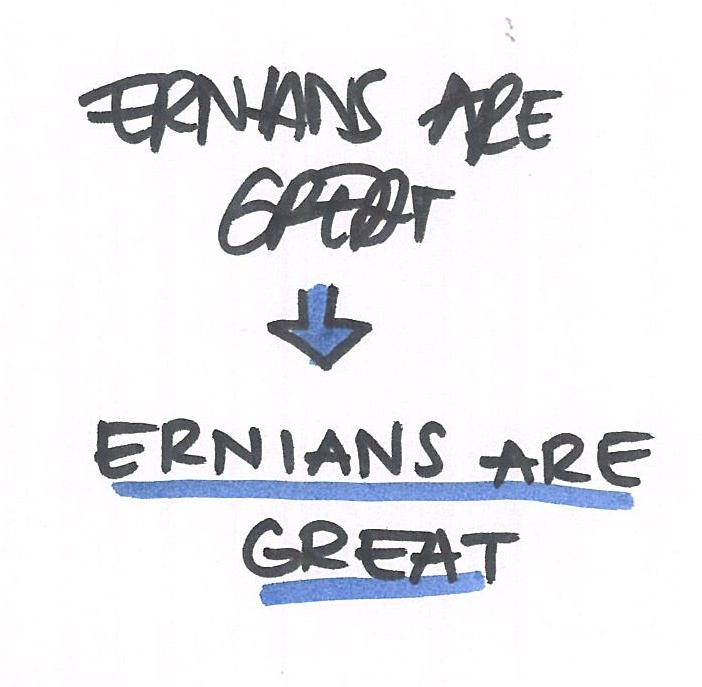 ERNIANS ARE
GREAT
ERNIANS ARE
GREAT